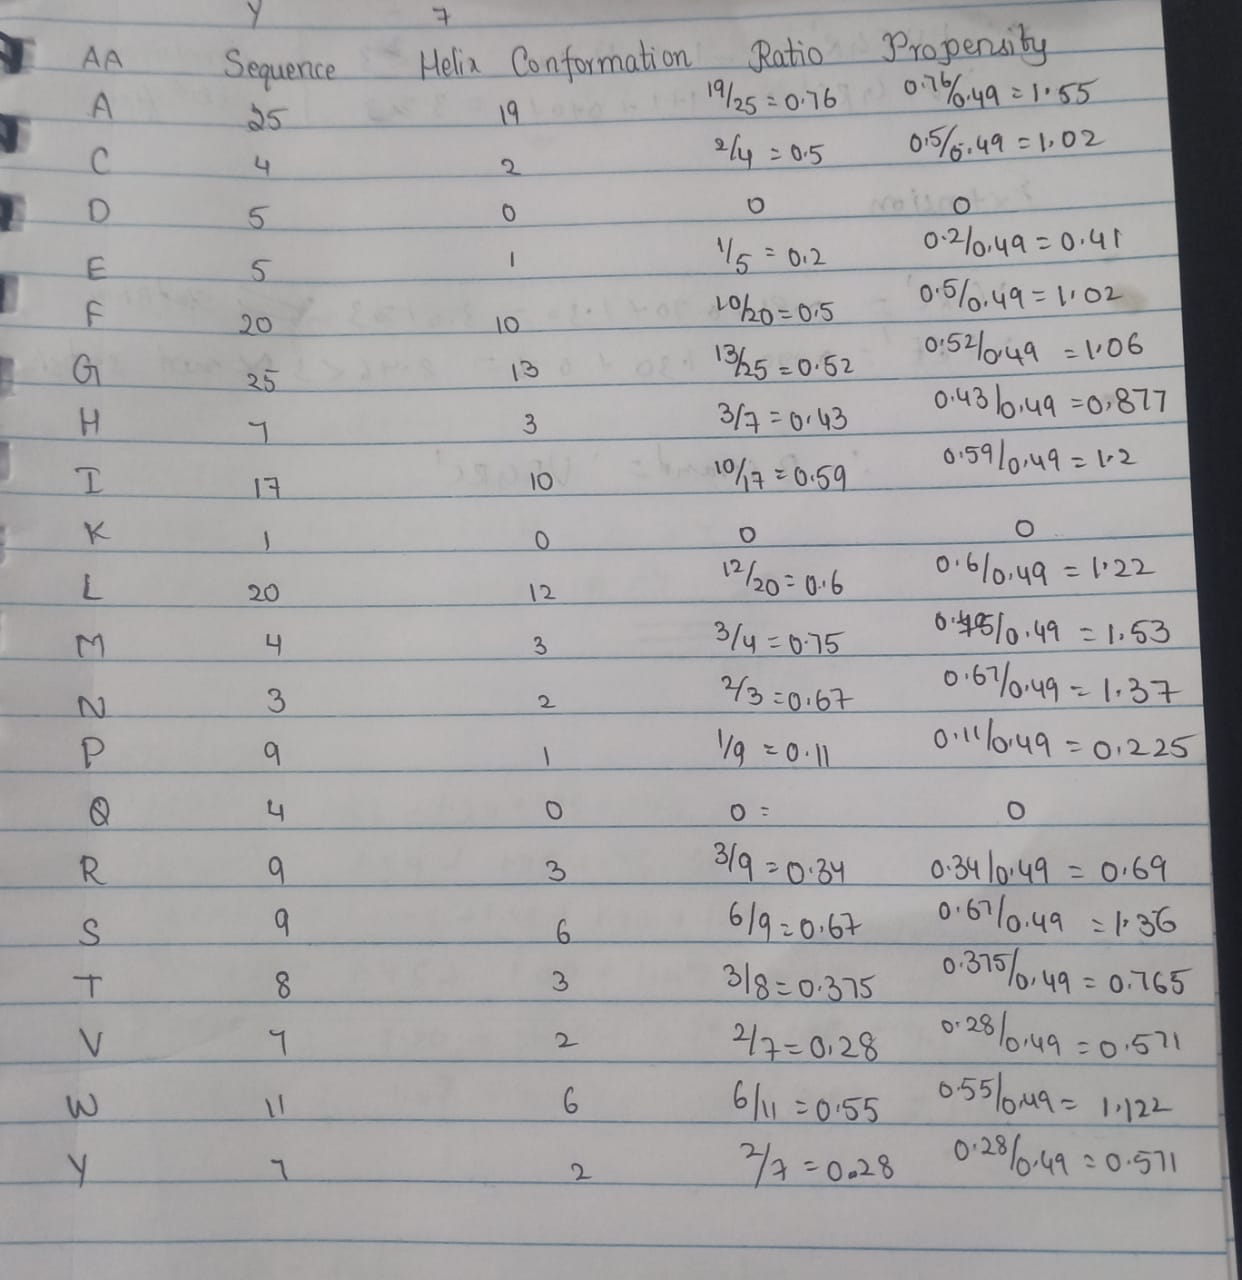 Y 7
AA Sequence Helix Conformation Ratio Propensity
A 25 19 19/25 = 0.76 0.76/0.49 = 1.55
C 4 2 2/4 = 0.5 0.5/0.49 = 1.02
D 5 0 0 0
E 5 1 1/5 = 0.2 0.2/0.49 = 0.41
F 20 10 10/20 = 0.5 0.5/0.49 = 1.02
G 25 13 13/25 = 0.52 0.52/0.49 = 1.06
H 7 3 3/7 = 0.43 0.43/0.49 = 0.877
I 17 10 10/17 = 0.59 0.59/0.49 = 1.2
K 1 0 0 0
L 20 12 12/20 = 0.6 0.6/0.49 = 1.22
M 4 3 3/4 = 0.75 0.75/0.49 = 1.53
N 3 2 2/3 = 0.67 0.67/0.49 = 1.37
P 9 1 1/9 = 0.11 0.11/0.49 = 0.225
Q 4 0 0 = 0
R 9 3 3/9 = 0.34 0.34/0.49 = 0.69
S 9 6 6/9 = 0.67 0.67/0.49 = 1.36
T 8 3 3/8 = 0.375 0.375/0.49 = 0.765
V 7 2 2/7 = 0.28 0.28/0.49 = 0.571
W 11 6 6/11 = 0.55 0.55/0.49 = 1.122
Y 7 2 2/7 = 0.28 0.28/0.49 = 0.571